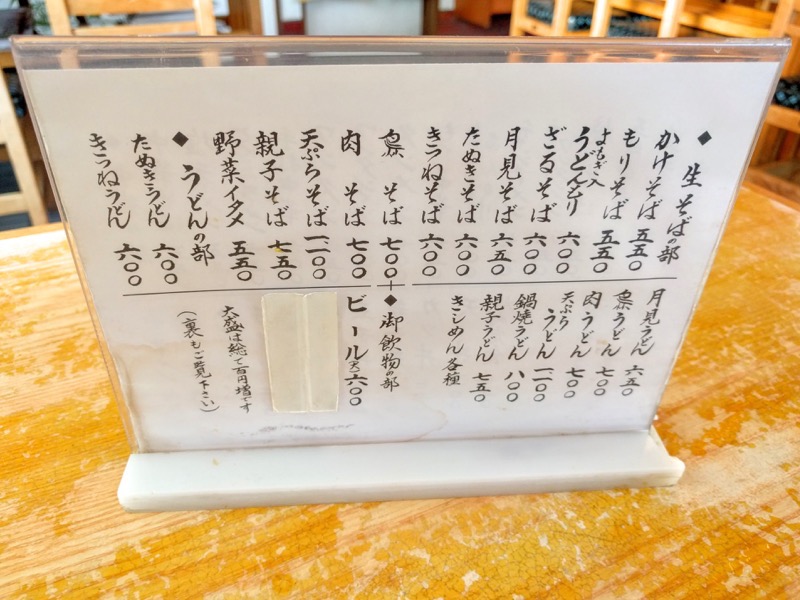 ◆ 生そばの部
かけそば 五五〇
もりそば 五五〇
よもぎ入
うどんもり 六〇〇
ざるそば 六〇〇
月見そば 六五〇
たぬきそば 六〇〇
きつねそば 六〇〇
そば 七〇〇
肉そば 七〇〇
天ぷらそば 一、一〇〇
親子そば 七五〇
野菜イタメ 五五〇
◆ うどんの部
たぬきうどん 六〇〇
きつねうどん 六〇〇
月見うどん 六五〇
うどん 七〇〇
肉うどん 七〇〇
天ぷらうどん 一、一〇〇
鍋焼うどん 八〇〇
親子うどん 七五〇
きしめん各種
◆ 御飲物の部
ビール(大) 六〇〇
大盛は総て百円増です
(裏もご覧下さい)